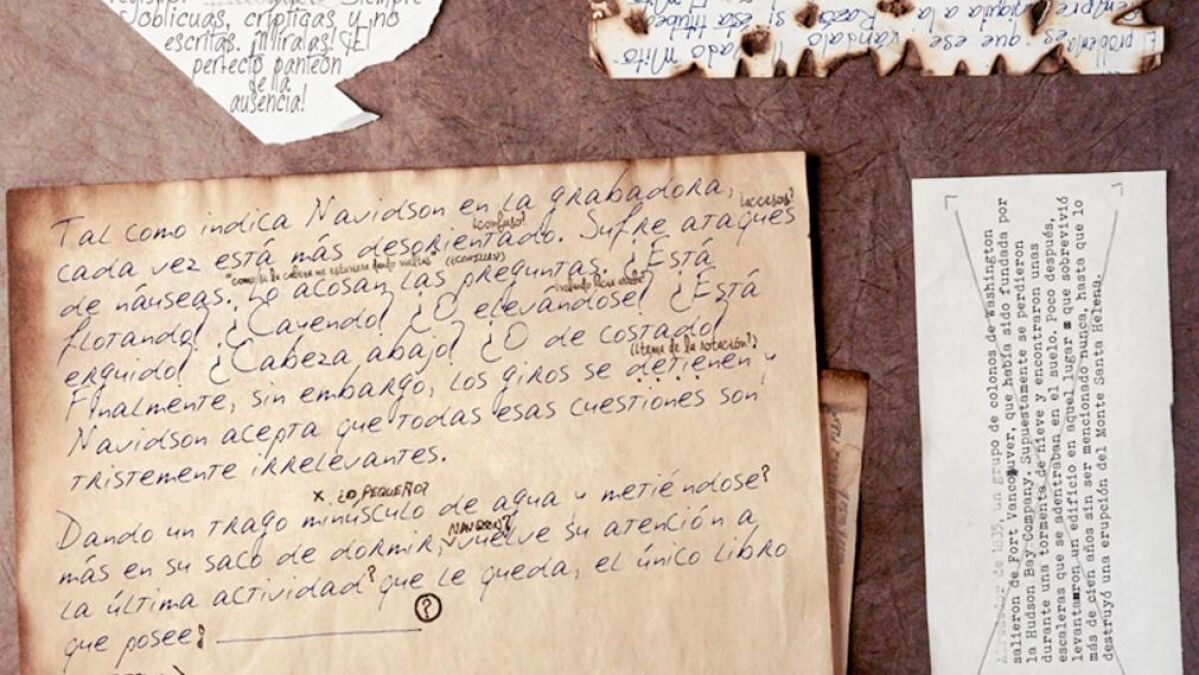 Siempre
oblicuas, crípticas, y no
escritas. ¡Míralas! ¡El
perfecto panteón
de la
ausencia!
problema es que ese vándalo llamado Mito
siempre aniquila a la Razón si ésta titubea
Tal como indica Navidson en la grabadora,
¿confuso? ¿accesos?
cada vez está más desorientado. Sufre ataques
de náuseas. Lo acosan las preguntas. ¿Está
flotando? ¿Cayendo? ¿O elevándose? ¿Está
erguido? ¿Cabeza abajo? ¿O de costado?
(¿tema de la rotación?)
Finalmente, sin embargo, los giros se detienen y
Navidson acepta que todas esas cuestiones son
tristemente irrelevantes.
x ¿o PEQUEÑO?
Dando un trago minúsculo de agua y metiéndose?
más en su saco de dormir, vuelve su atención a
la última actividad? que le queda, el único libro
que posee: ?
Alrededor de 1835, un grupo de colonos de Washington
salieron de Fort Vancouver, que había sido fundada por
la Hudson Bay Company. Supuestamente se perdieron
durante una tormenta de nieve y encontraron unas
escaleras que se adentraban en el suelo. Poco después,
levantaron un edificio en aquel lugar que sobrevivió
más de cien años sin ser mencionado nunca, hasta que lo
destruyó una erupción del Monte Santa Helena.